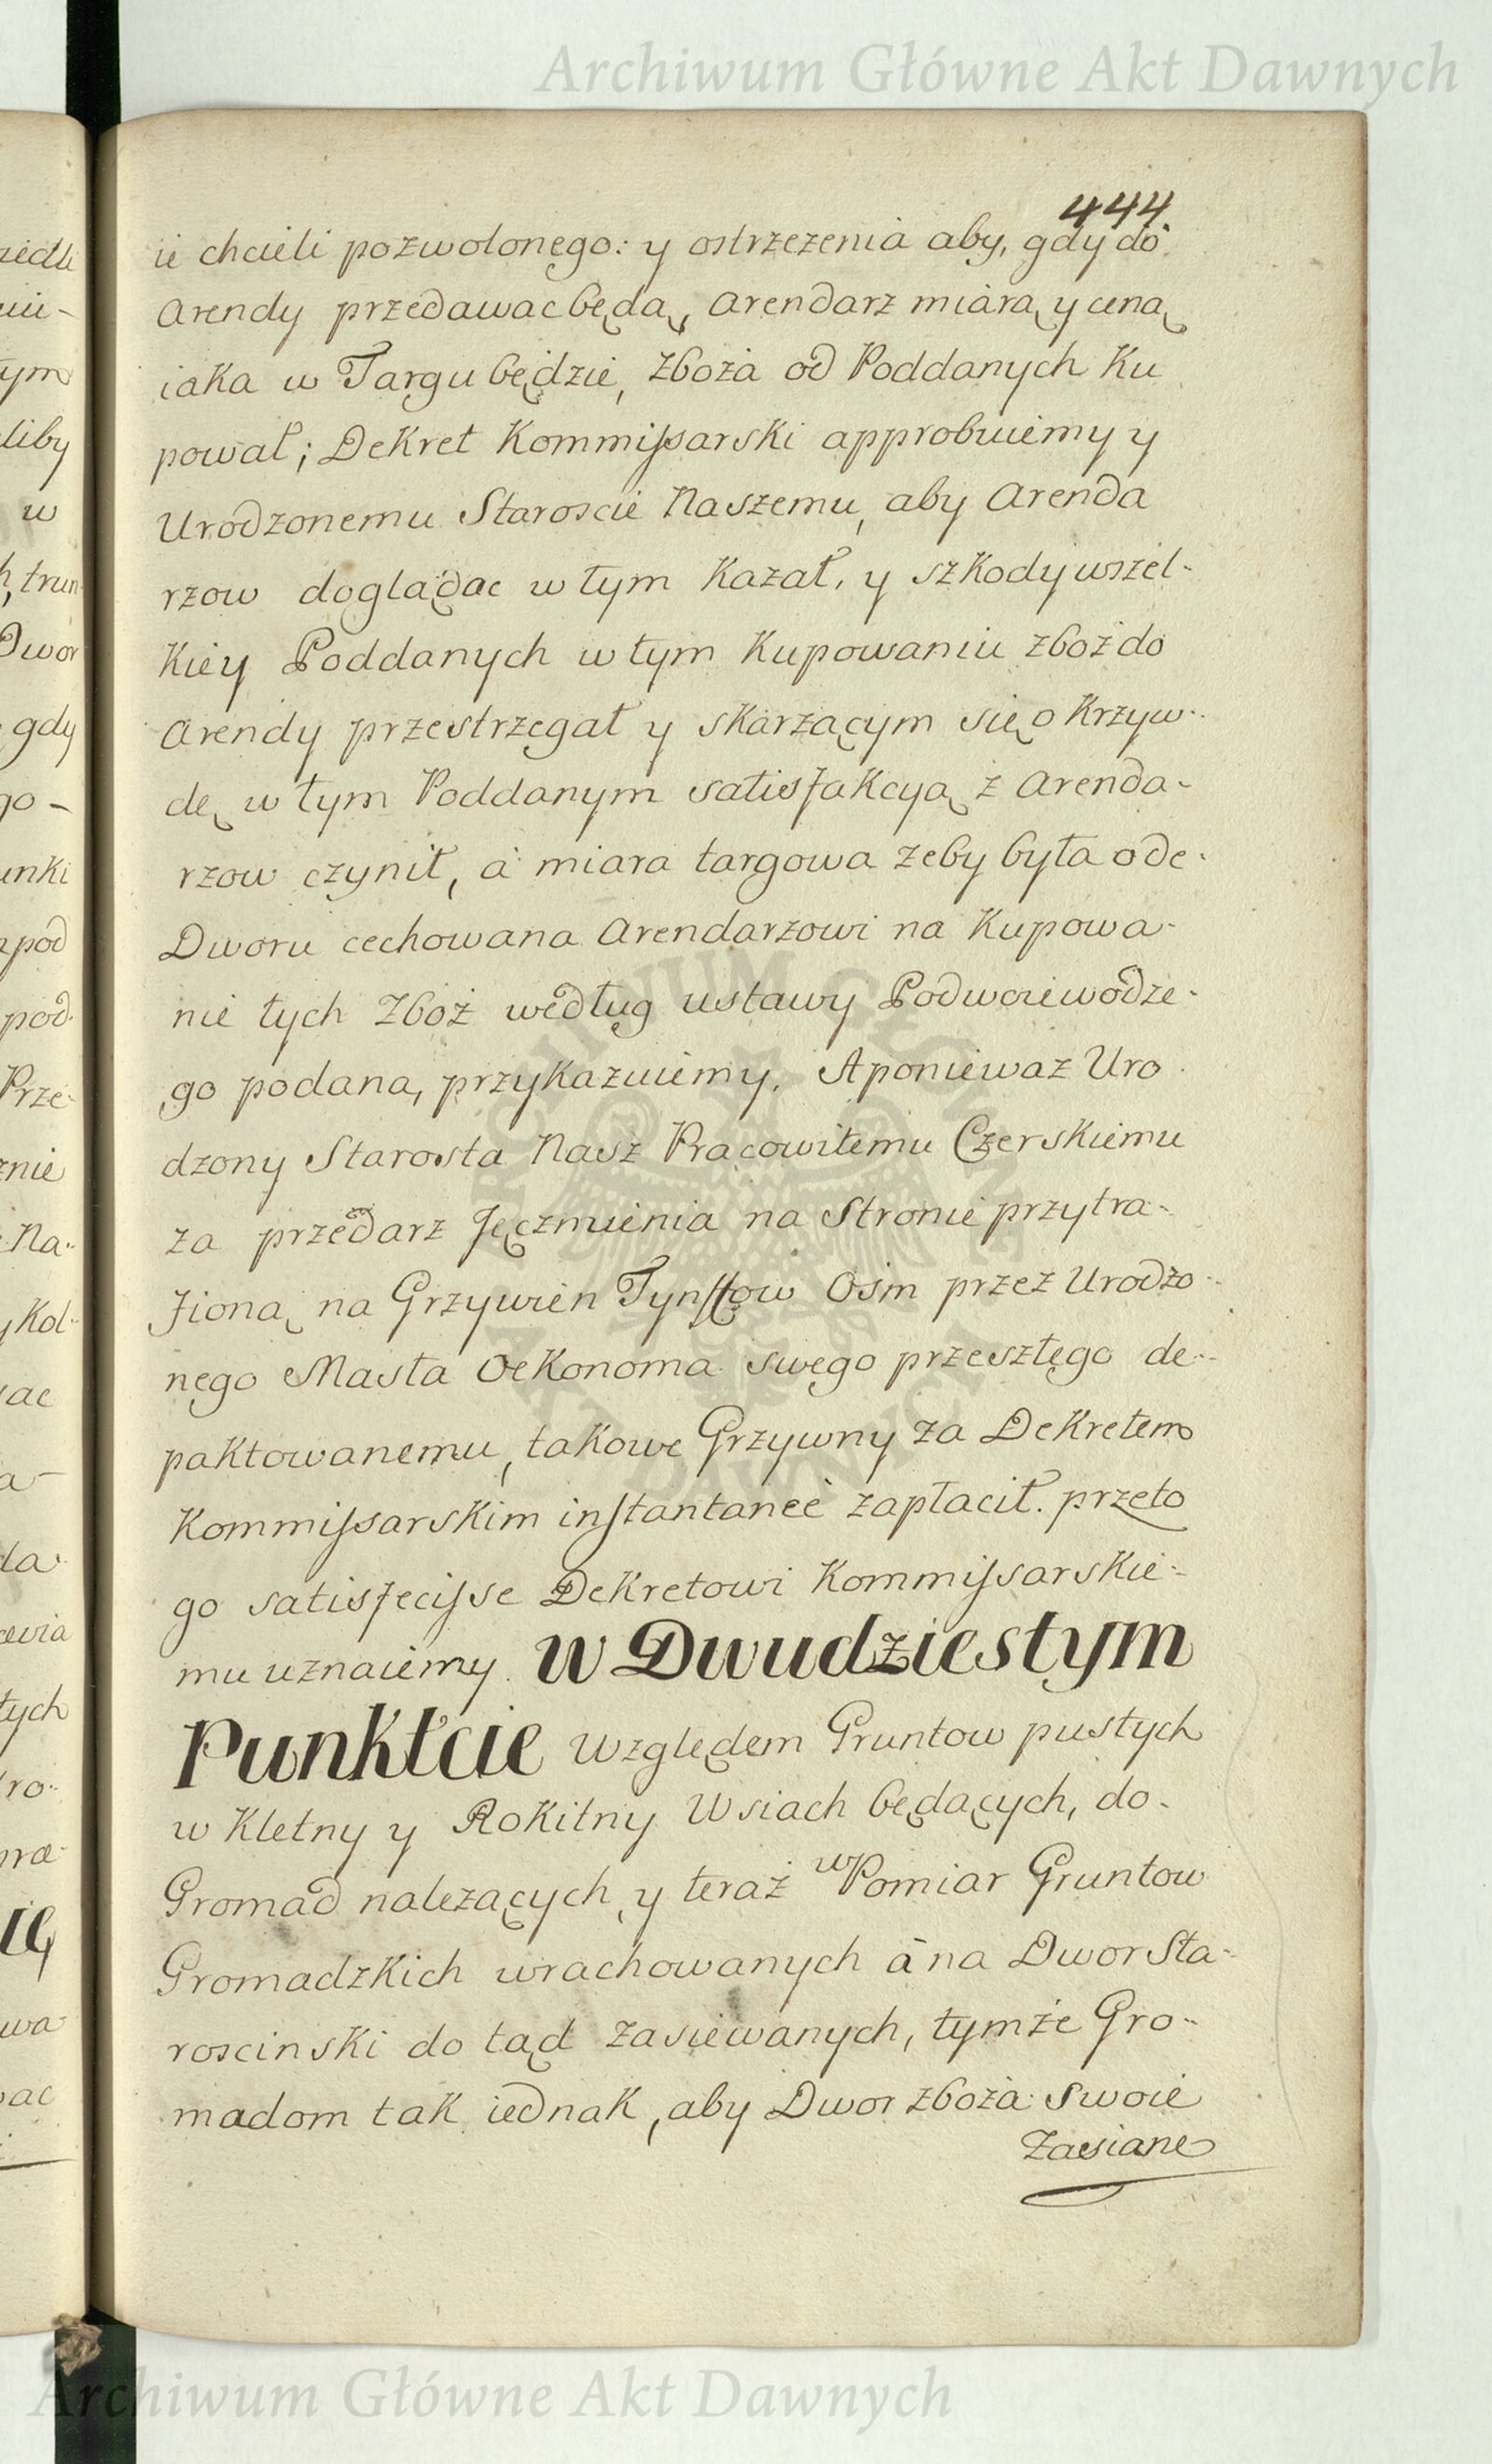 Archiwum Główne Akt Dawnych
444.
ie chcieli pozwolonego: y ostrzezenia aby, gdy do
Arendy przedawac będą, Arendarz miarą y ceną
iaka w Targu będzie, Zboża od Poddanych Ku
pował; Dekret Kommissarski approbuiemy y
Urodzonemu Staroscie Naszemu, aby Arenda
rzow doglądac w tym Kazał, y szkody wszel-
kiey Poddanych w tym Kupowaniu zboż do
Arendy przestrzegał y skarzącym się o Krzyw-
dę w tym Poddanym satisfakcyą z Arenda-
rzow czynił, á miara targowa zeby była ode
Dworu cechowana Arendarzowi na Kupowa-
nie tych Zboż według ustawy Podwoiewodze-
go podana, przykazuiemy. A poniewaz Uro
dzony Starosta Nasz Pracowitemu Czerskiemu
za przedarz Jęczmienia na Stronie przytra-
fioną na Grzywien Tynffow Osm przez Urodzo-
nego Masta Oekonoma swego przeszłego de-
paktowanemu, takowe Grzywny za Dekretem
Kommissarskim instantaneé zapłacił. przeto
go satisfecisse Dekretowi Kommissarskie-
mu uznaiemy. W Dwudziestym
Punktcie Względem Gruntow pustych
w Kletny y Rokitny Wsiach będących, do-
Gromad nalezących, y teraż w Pomiar Gruntow
Gromadzkich wrachowanych á na Dwor Sta-
roscinski do tąd zasiewanych, tymże Gro-
madom tak iednak, aby Dwor zboża swoie
Zasiane
Archiwum Główne Akt Dawnych